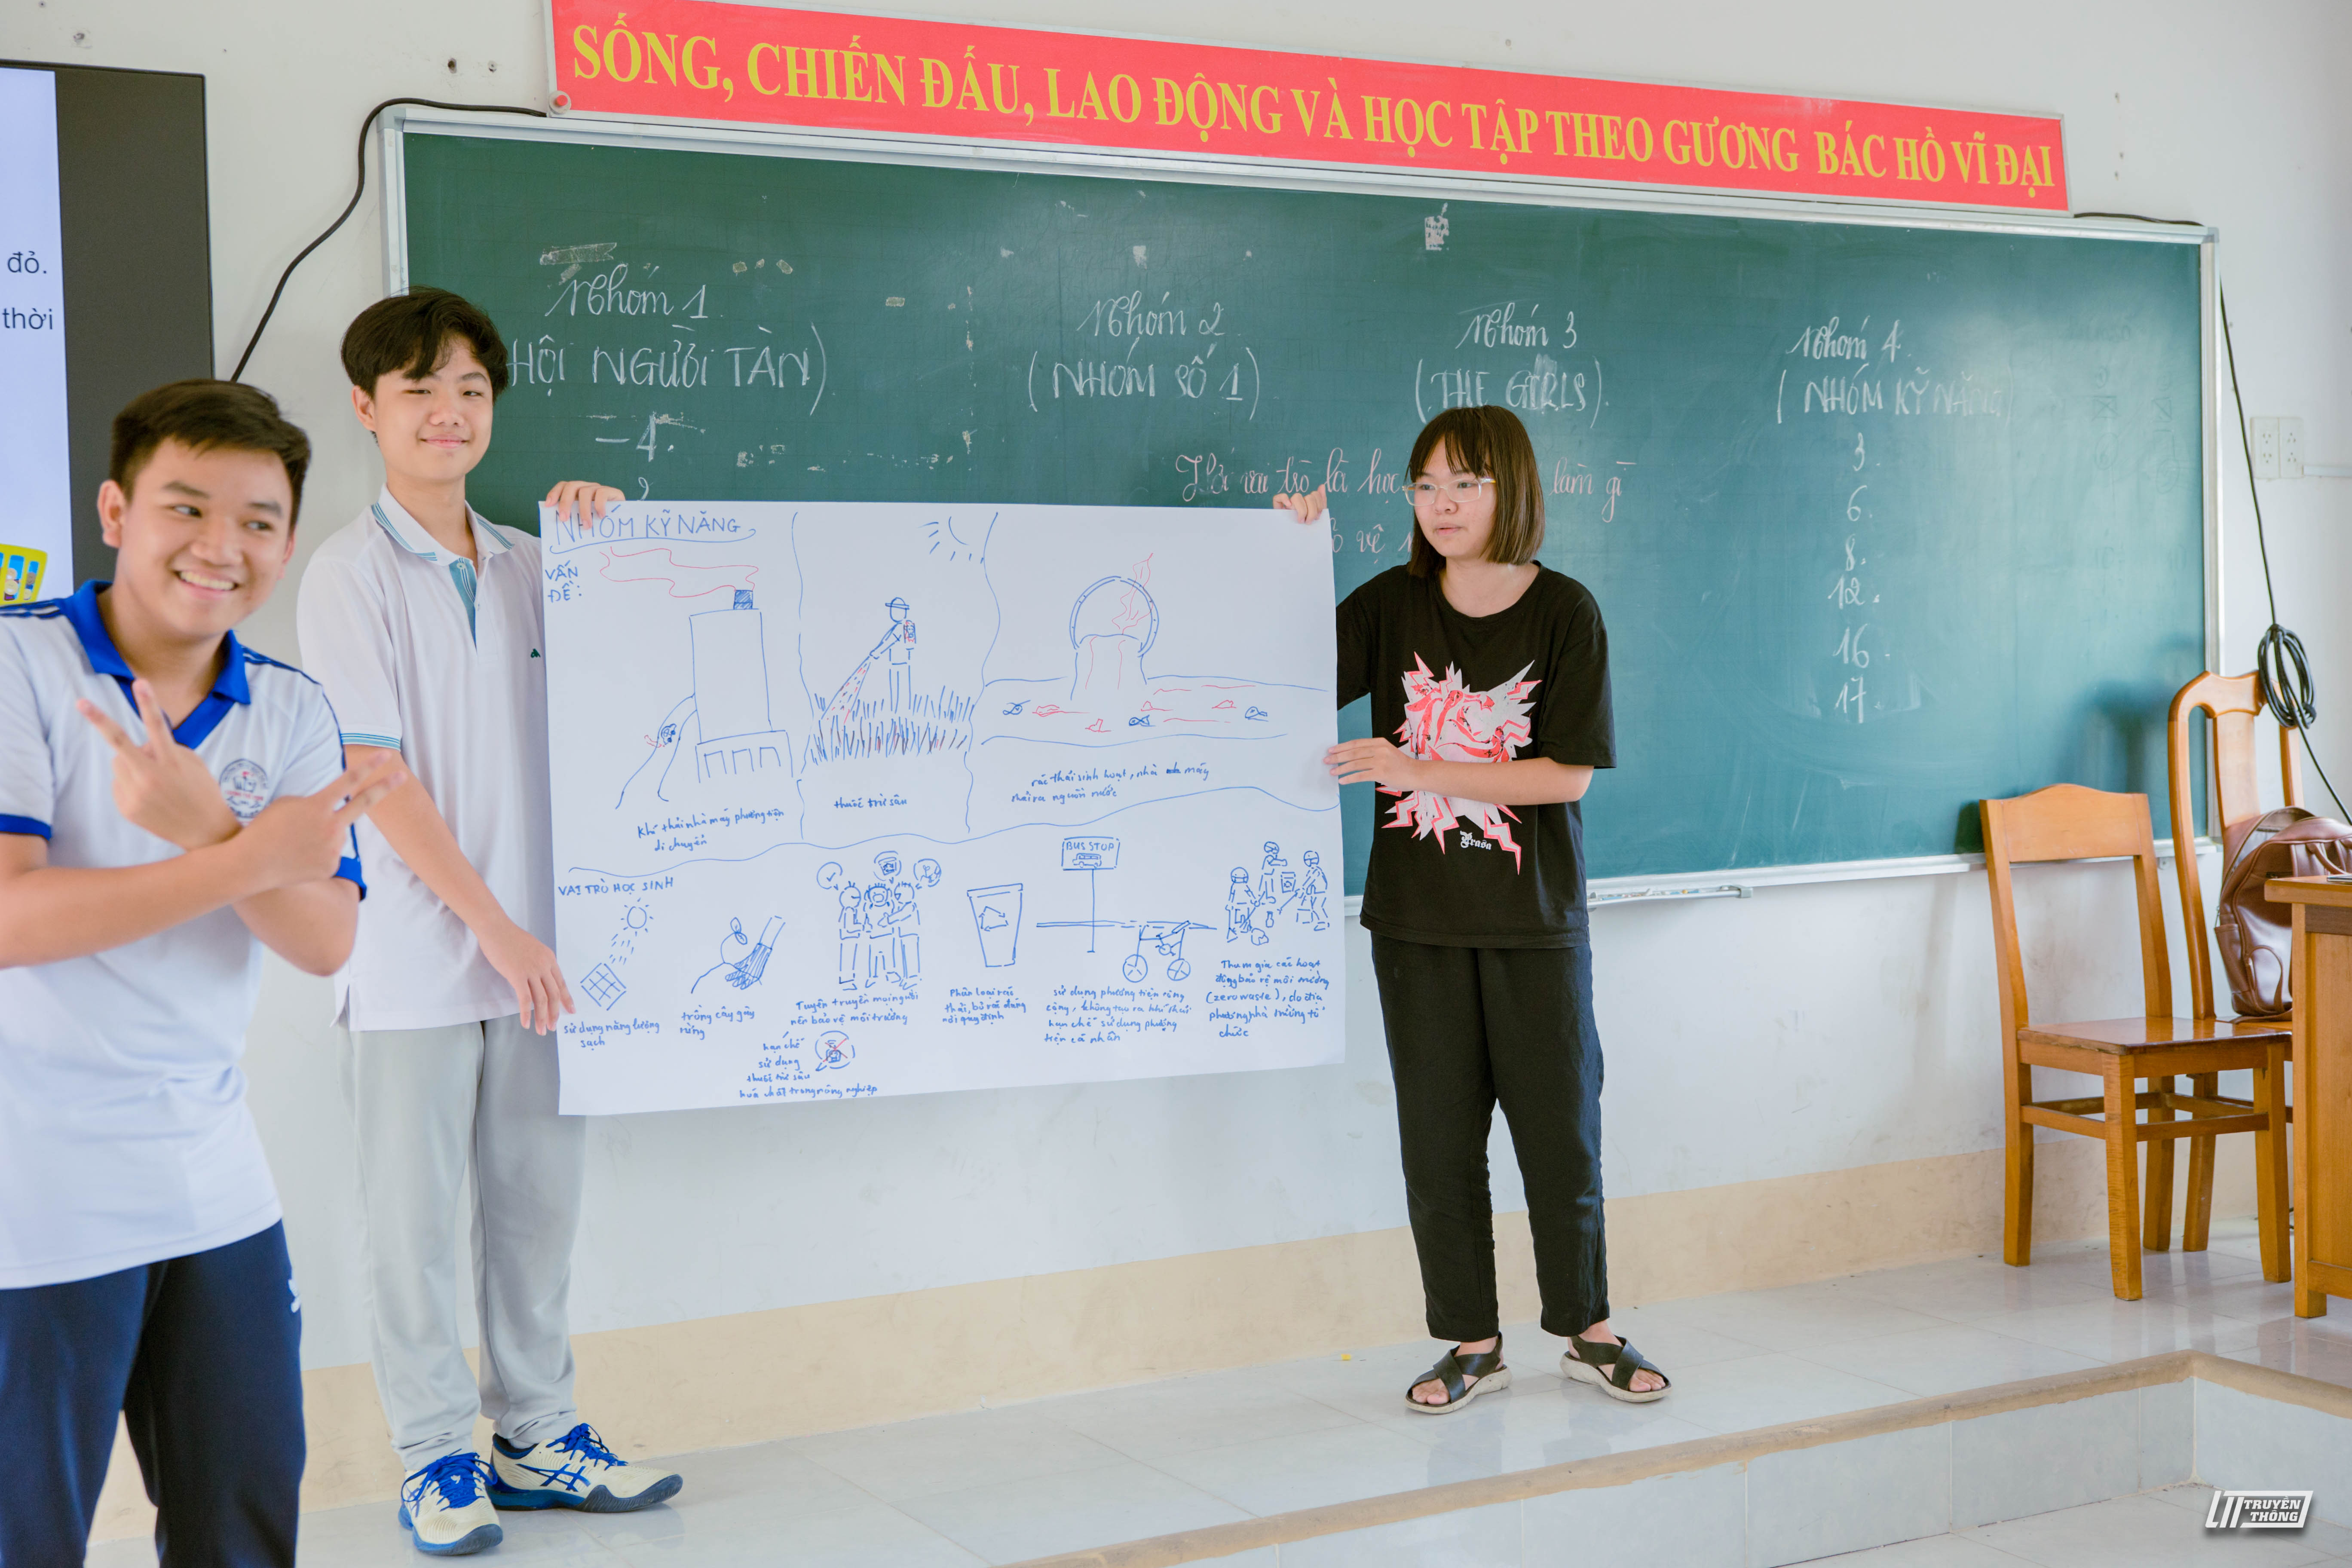 SỐNG, CHIẾN ĐẤU, LAO ĐỘNG VÀ HỌC TẬP THEO GƯƠNG BÁC HỒ VĨ ĐẠI
đỏ.
thời
Nhóm 1
HỘI NGƯỜI TÀN)
-4.
Nhóm 2
(NHÓM SỐ 1)
Nhóm 3
(THE GIRLS).
Nhóm 4.
(NHÓM KỸ NĂNG)
3.
6.
8.
12.
16.
17.
vai trò là học
làm gì
vệ
NHÓM KỸ NĂNG
VẤN
ĐỀ:
Khí thải nhà máy phương tiện
di chuyển
thuốc trừ sâu
rác thải sinh hoạt, nhà máy
thải ra nguồn nước
VAI TRÒ HỌC SINH
sử dụng năng lượng
sạch
trồng cây gây
rừng
Tuyên truyền mọi người
nên bảo vệ môi trường
hạn chế
sử dụng
thuốc trừ sâu
hoá chất trong nông nghiệp
Phân loại rác
thải, bỏ rác đúng
nơi quy định
BUS STOP
sử dụng phương tiện công
cộng, không tạo ra khí thải
hạn chế sử dụng phương
tiện cá nhân
Tham gia các hoạt
động bảo vệ môi trường
(zero waste), do địa
phương, nhà trường tổ
chức
Prasa
TRUYỀN
THÔNG